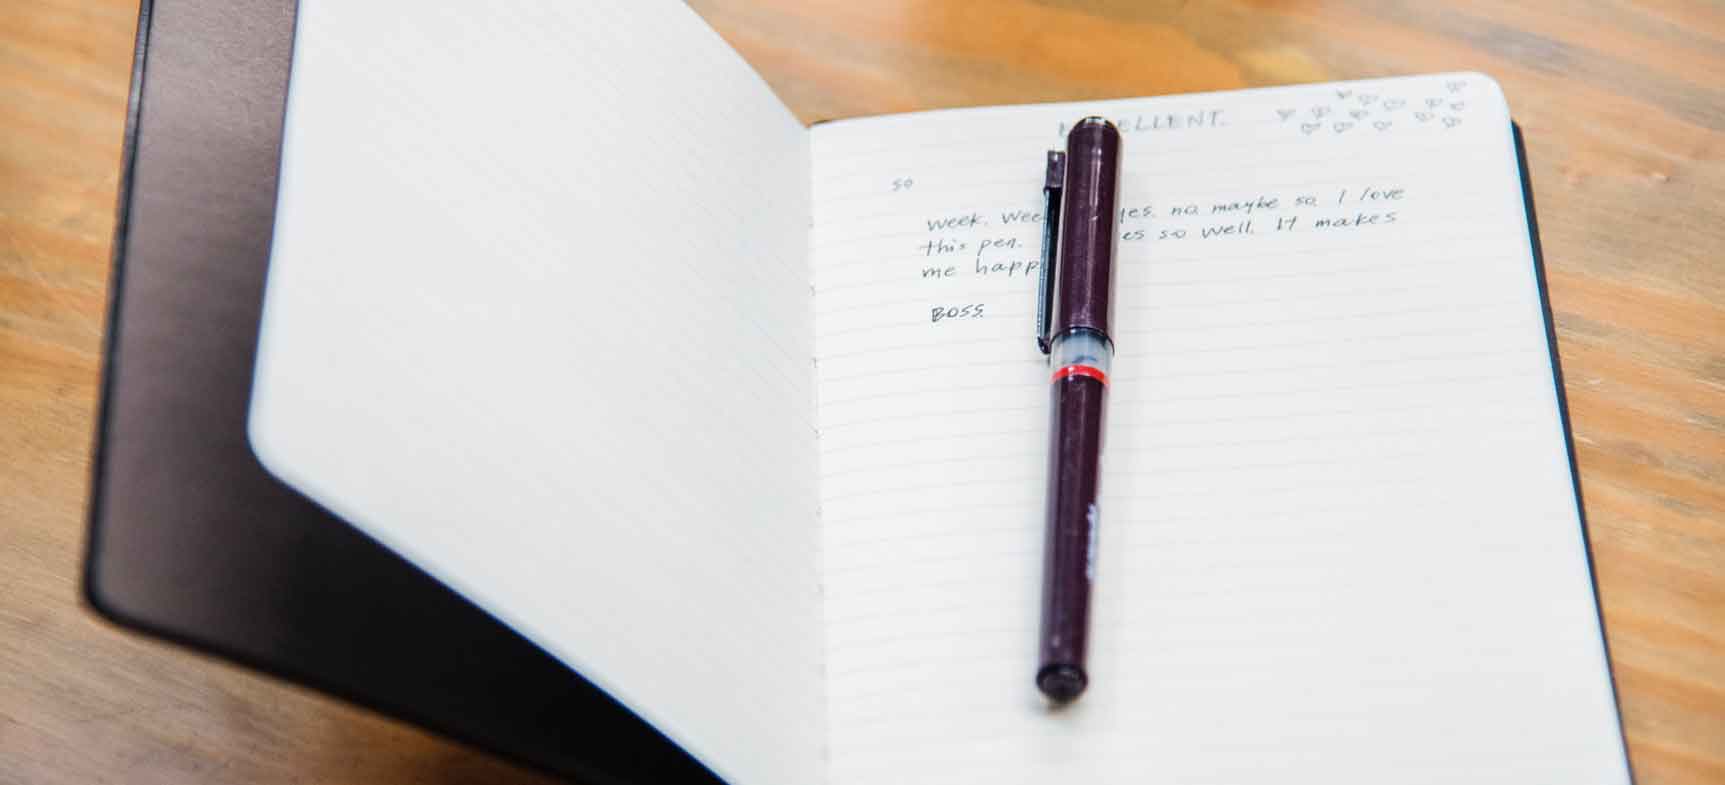 ELLENT.
so
week. wee yes. no maybe so I love
this pen. es so well. It makes
me happ
BOSS